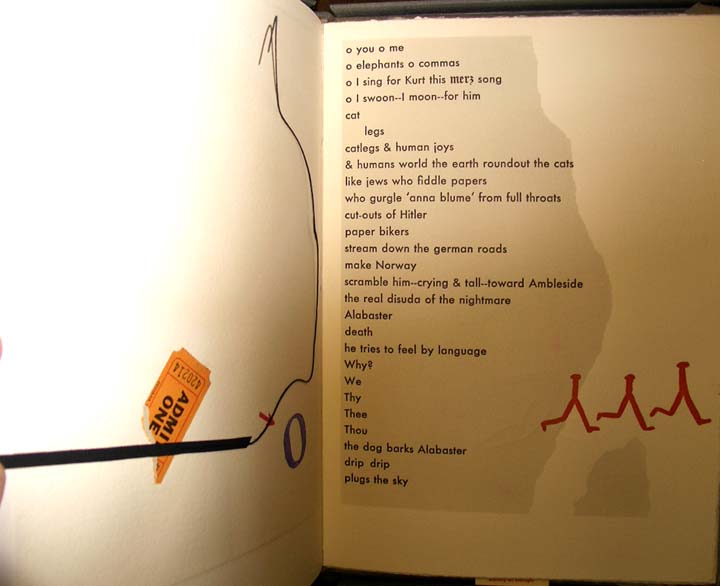 420214
ADMIT
ONE
o you o me
o elephants o commas
o I sing for Kurt this merz song
o I swoon--I moon--for him
cat
legs
catlegs & human joys
& humans world the earth roundout the cats
like jews who fiddle papers
who gurgle 'anna blume' from full throats
cut-outs of Hitler
paper bikers
stream down the german roads
make Norway
scramble him--crying & tall--toward Ambleside
the real disuda of the nightmare
Alabaster
death
he tries to feel by language
Why?
We
Thy
Thee
Thou
the dog barks Alabaster
drip drip
plugs the sky